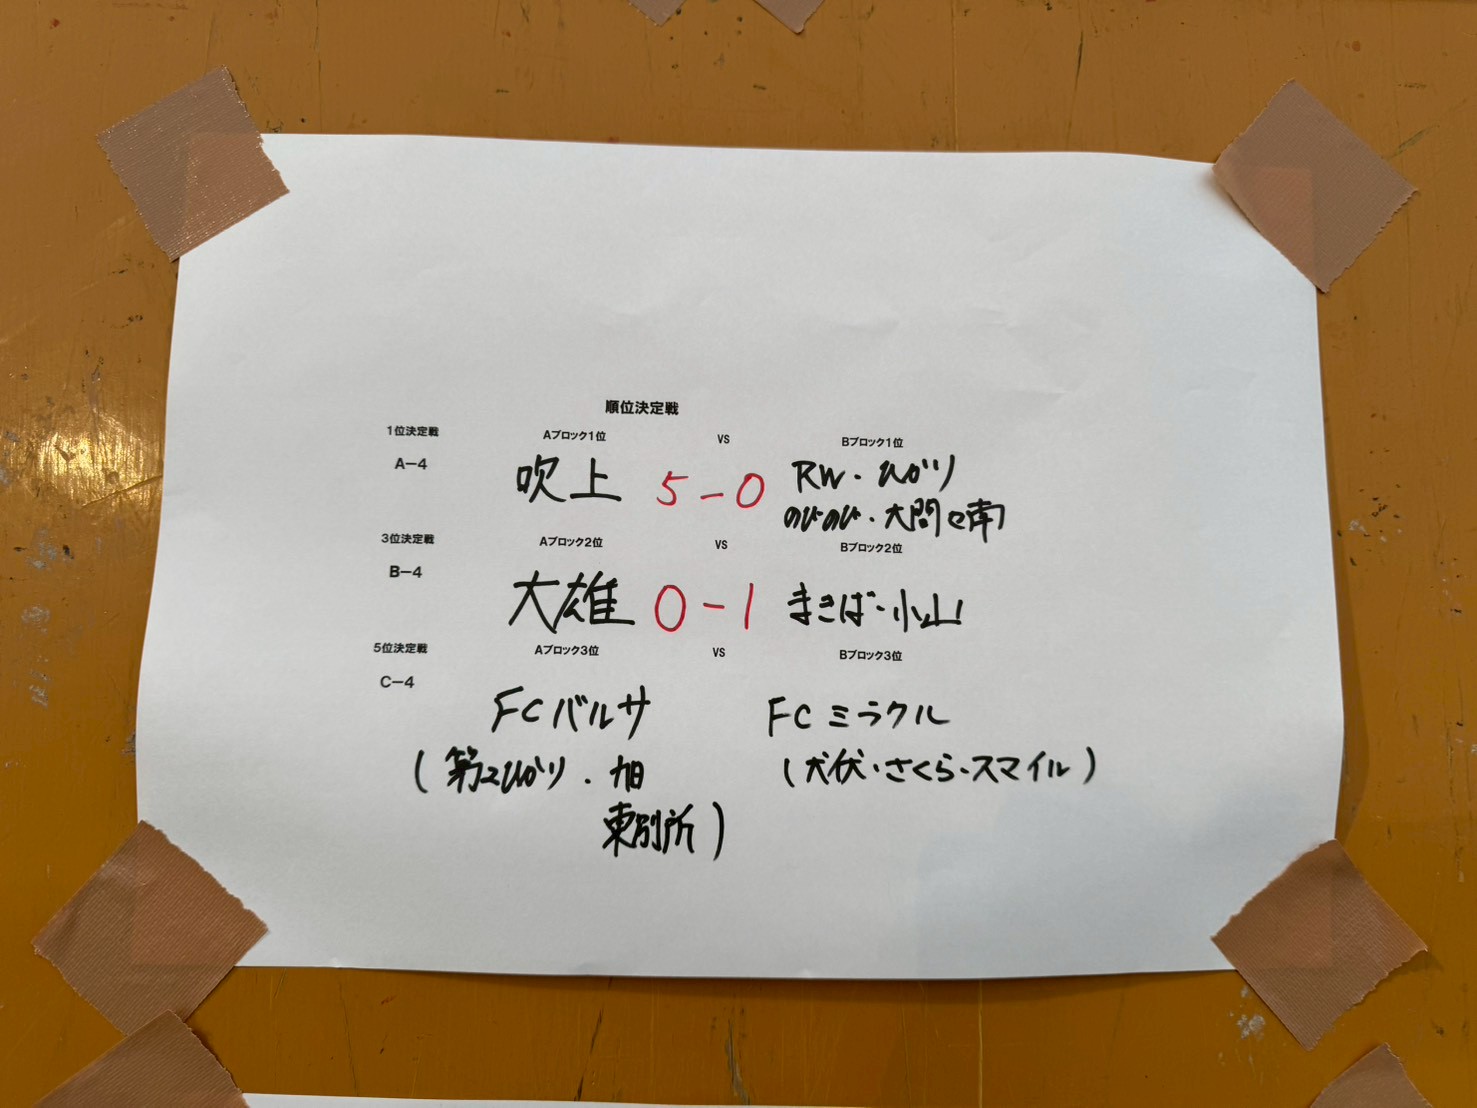 順位決定戦
1位決定戦 Aブロック1位 VS Bブロック1位
A-4 吹上 5-0 RW・ひがり
のびのび・大間々南
3位決定戦 Aブロック2位 VS Bブロック2位
B-4 大雄 0-1 まきば・小山
5位決定戦 Aブロック3位 VS Bブロック3位
C-4
FCバルサ FCミラクル
(第2ひかり・旭 (犬伏・さくら・スマイル)
東別所)